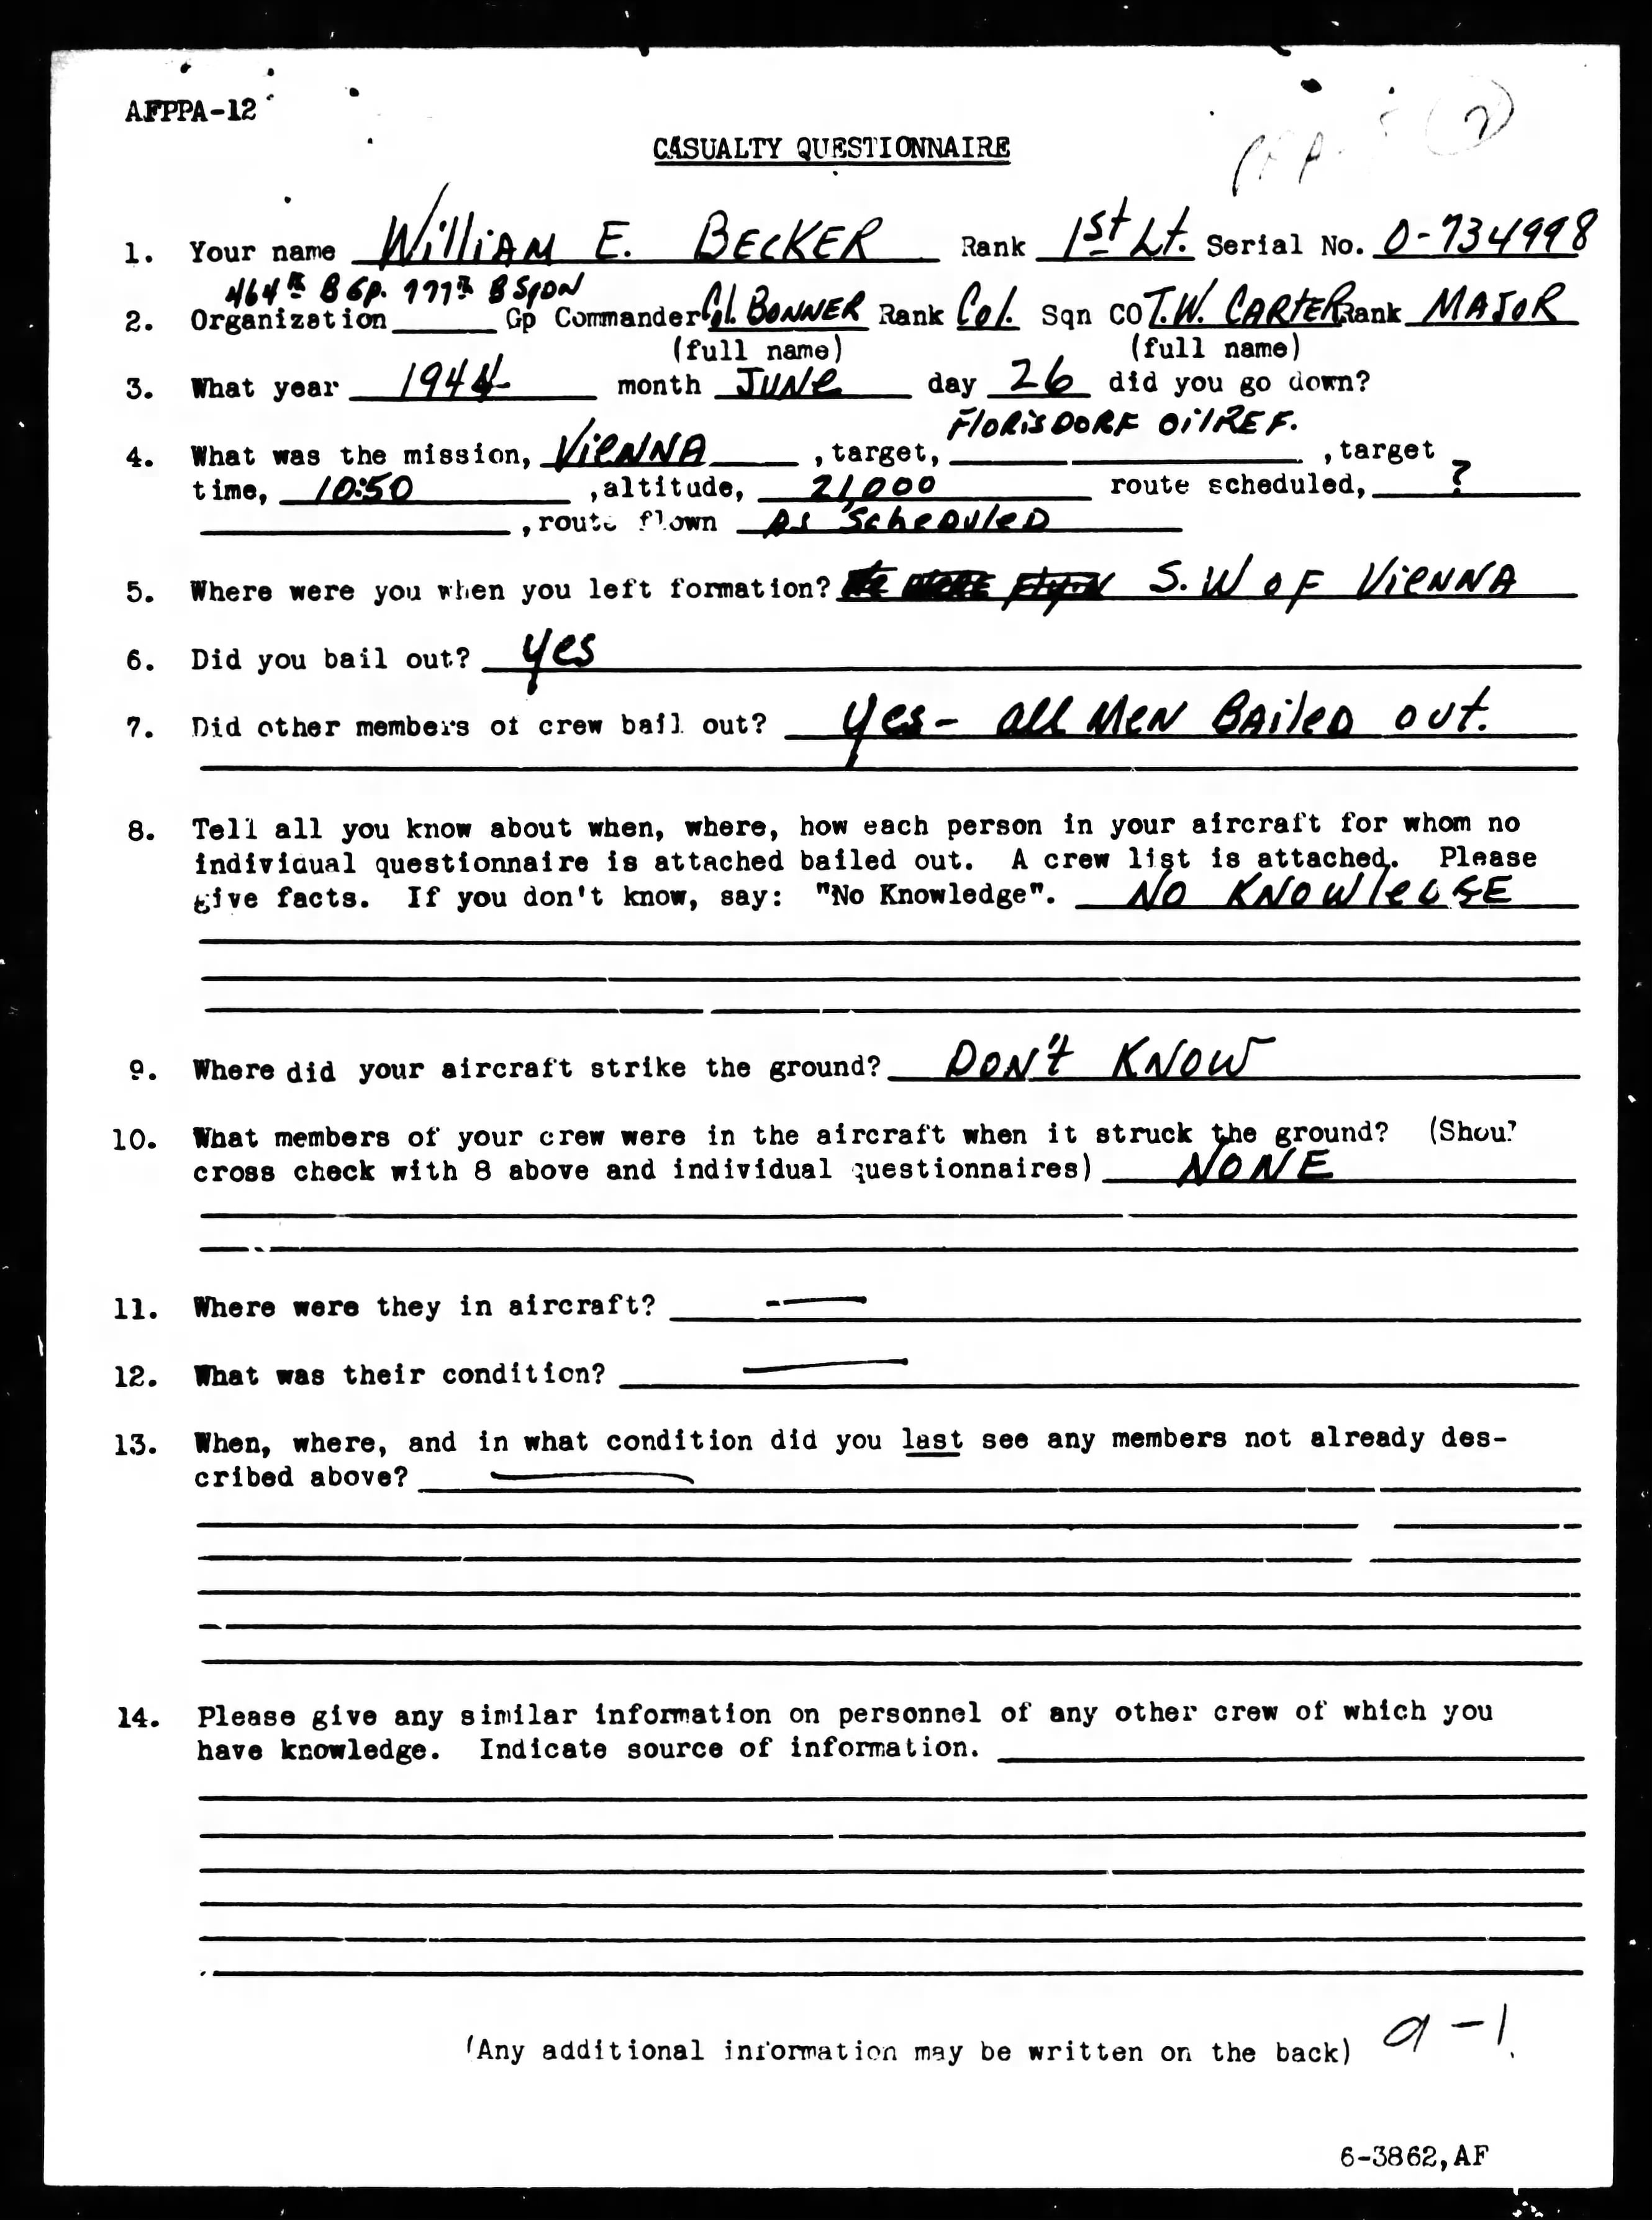 AFPPA-12
CASUALTY QUESTIONNAIRE
1. Your name William E. BECKER Rank 1st Lt. Serial No. O-734998
464th B Gp. 777th B Sqdn
2. Organization Gp Commander Col. BONNER Rank Col. Sqn CO T.W. CARTER Rank MAJOR
(full name) (full name)
3. What year 1944 month JUNE day 26 did you go down?
FlorisDORF OilREF.
4. What was the mission, ViENNA , target, , target
time, 10:50 , altitude, 21,000 route scheduled, ?
, route flown As ScheDuleD
5. Where were you when you left formation? S.W OF ViENNA
6. Did you bail out? yes
7. Did other members of crew bail out? yes - all MEN BAileD out.
8. Tell all you know about when, where, how each person in your aircraft for whom no
individual questionnaire is attached bailed out. A crew list is attached. Please
give facts. If you don't know, say: "No Knowledge". NO KNOWleDGE
9. Where did your aircraft strike the ground? DON't KNOW
10. What members of your crew were in the aircraft when it struck the ground? (Shou?
cross check with 8 above and individual questionnaires) NONE
11. Where were they in aircraft? —
12. What was their condition? —
13. When, where, and in what condition did you last see any members not already des-
cribed above? —
14. Please give any similar information on personnel of any other crew of which you
have knowledge. Indicate source of information.
(Any additional information may be written on the back) a-1
6-3862,AF